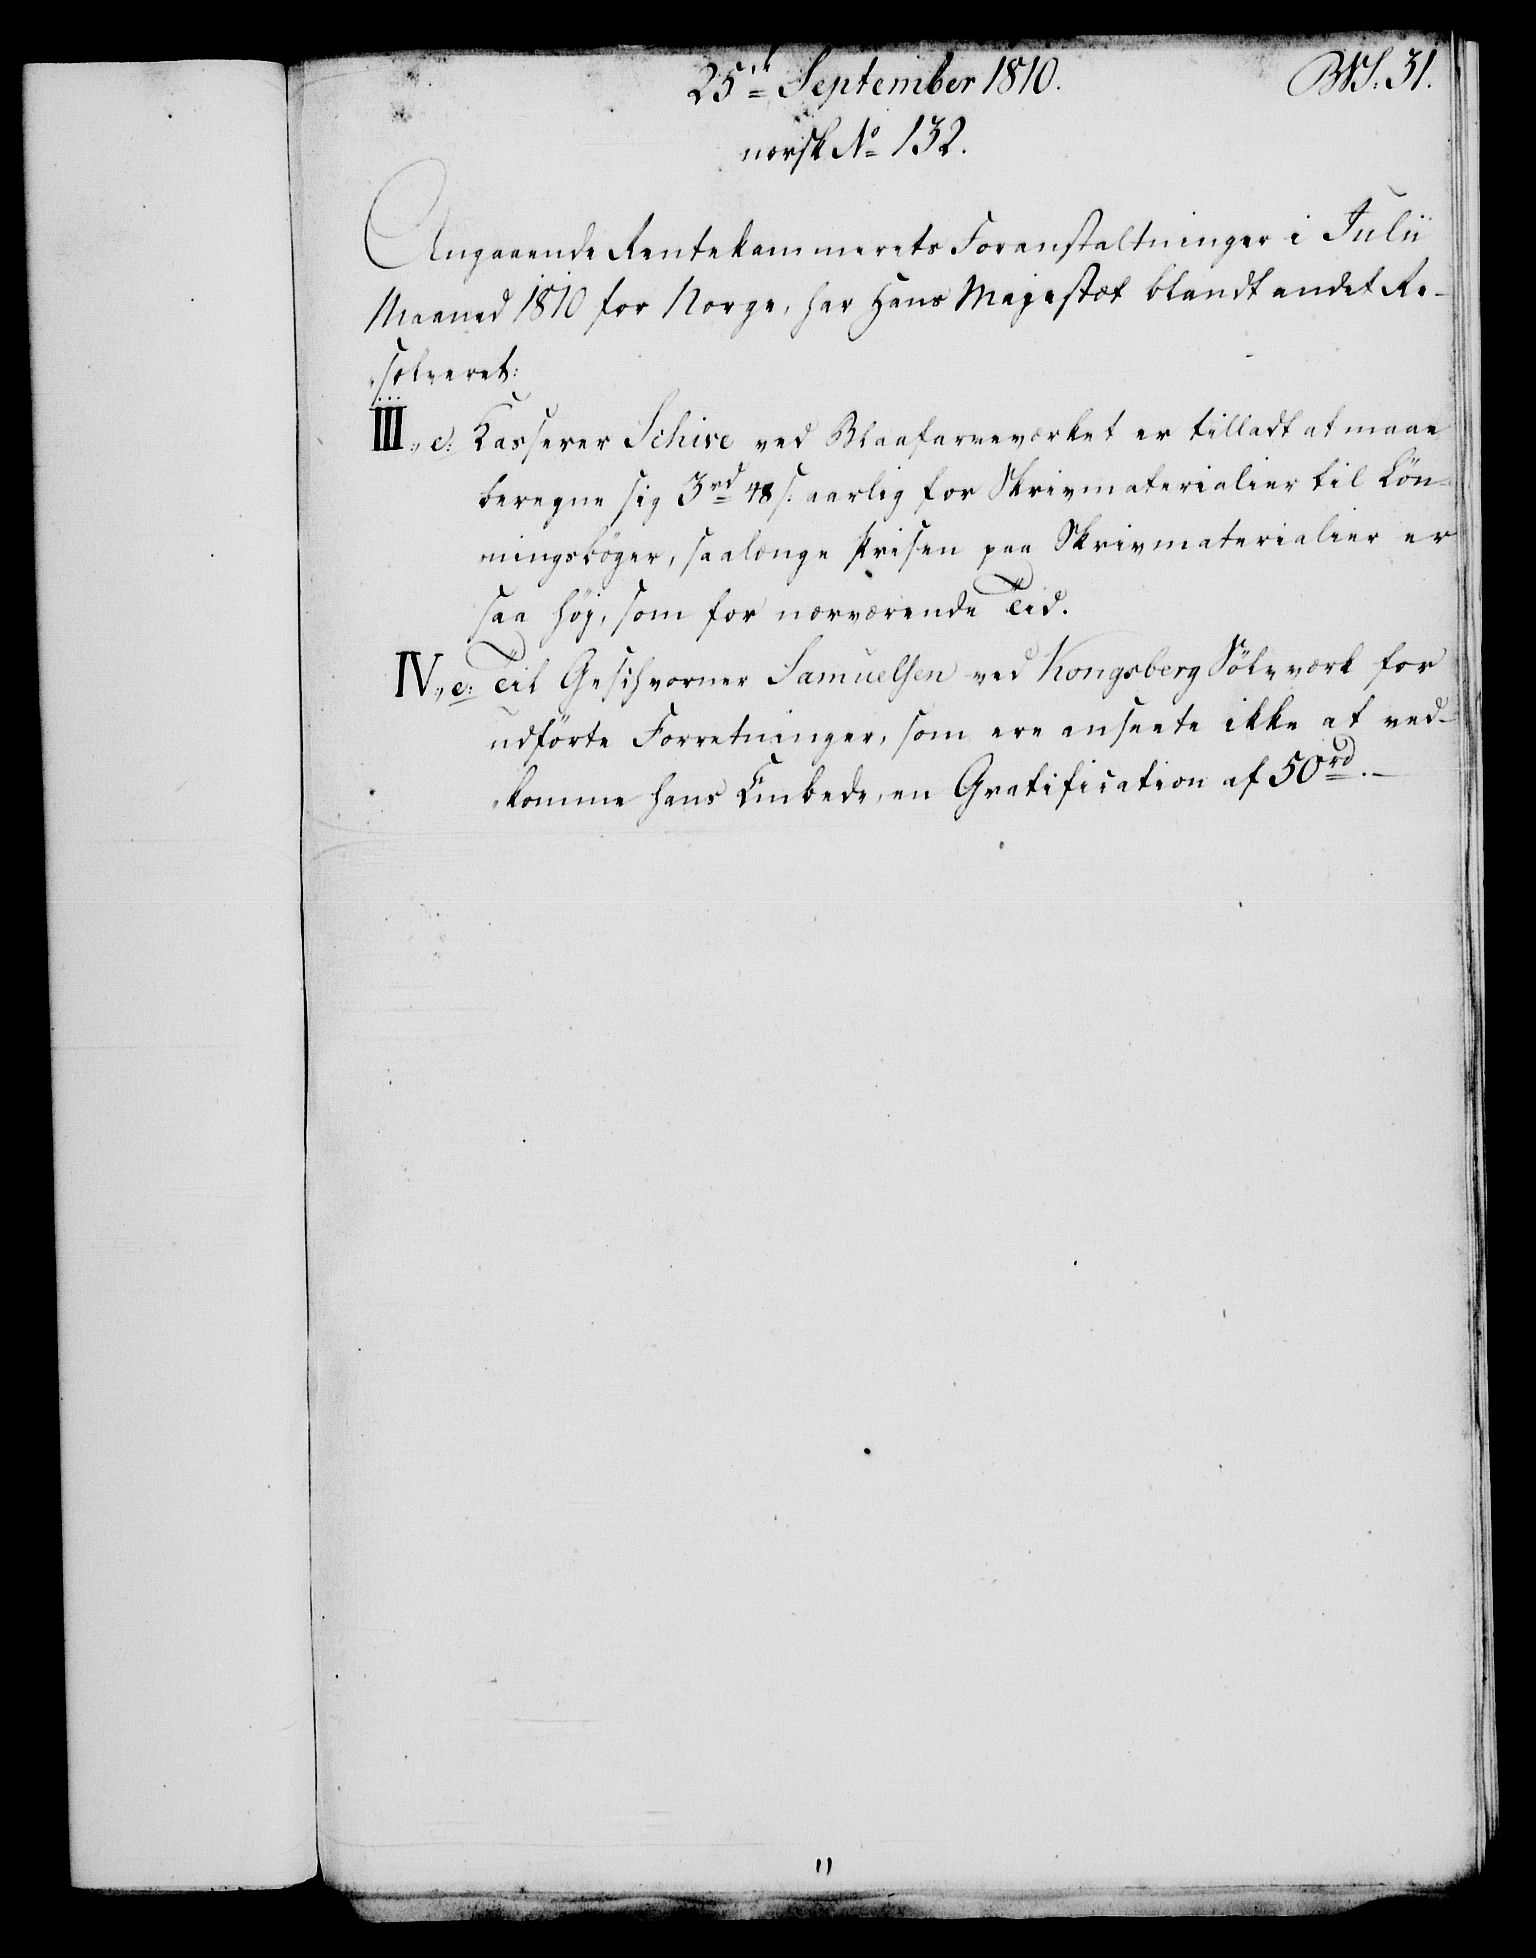 25de September 1810.
norsk No 132.
Angaaende Rentekammerets Foranstaltninger i Julii
Maaned 1810 for Norge, har Hans Majestæt blandt andet Re-
solveret:
III, c: Kasserer Schive ved Blaafarveværket er tilladt at maae
beregne sig 3rd 48 s. aarlig for Skrivmaterialier til Lön-
ningsböger, saalænge Prisen paa Skrivmaterialier er
saa höj, som for nærværende Tid.
IV, c: Til Geschvorner Samuelsen ved Kongsberg Sölvværk for
udförte Forretninger, som ere ansete ikke at ved-
komme hans Embede, en Gratification af 50rd.-
11